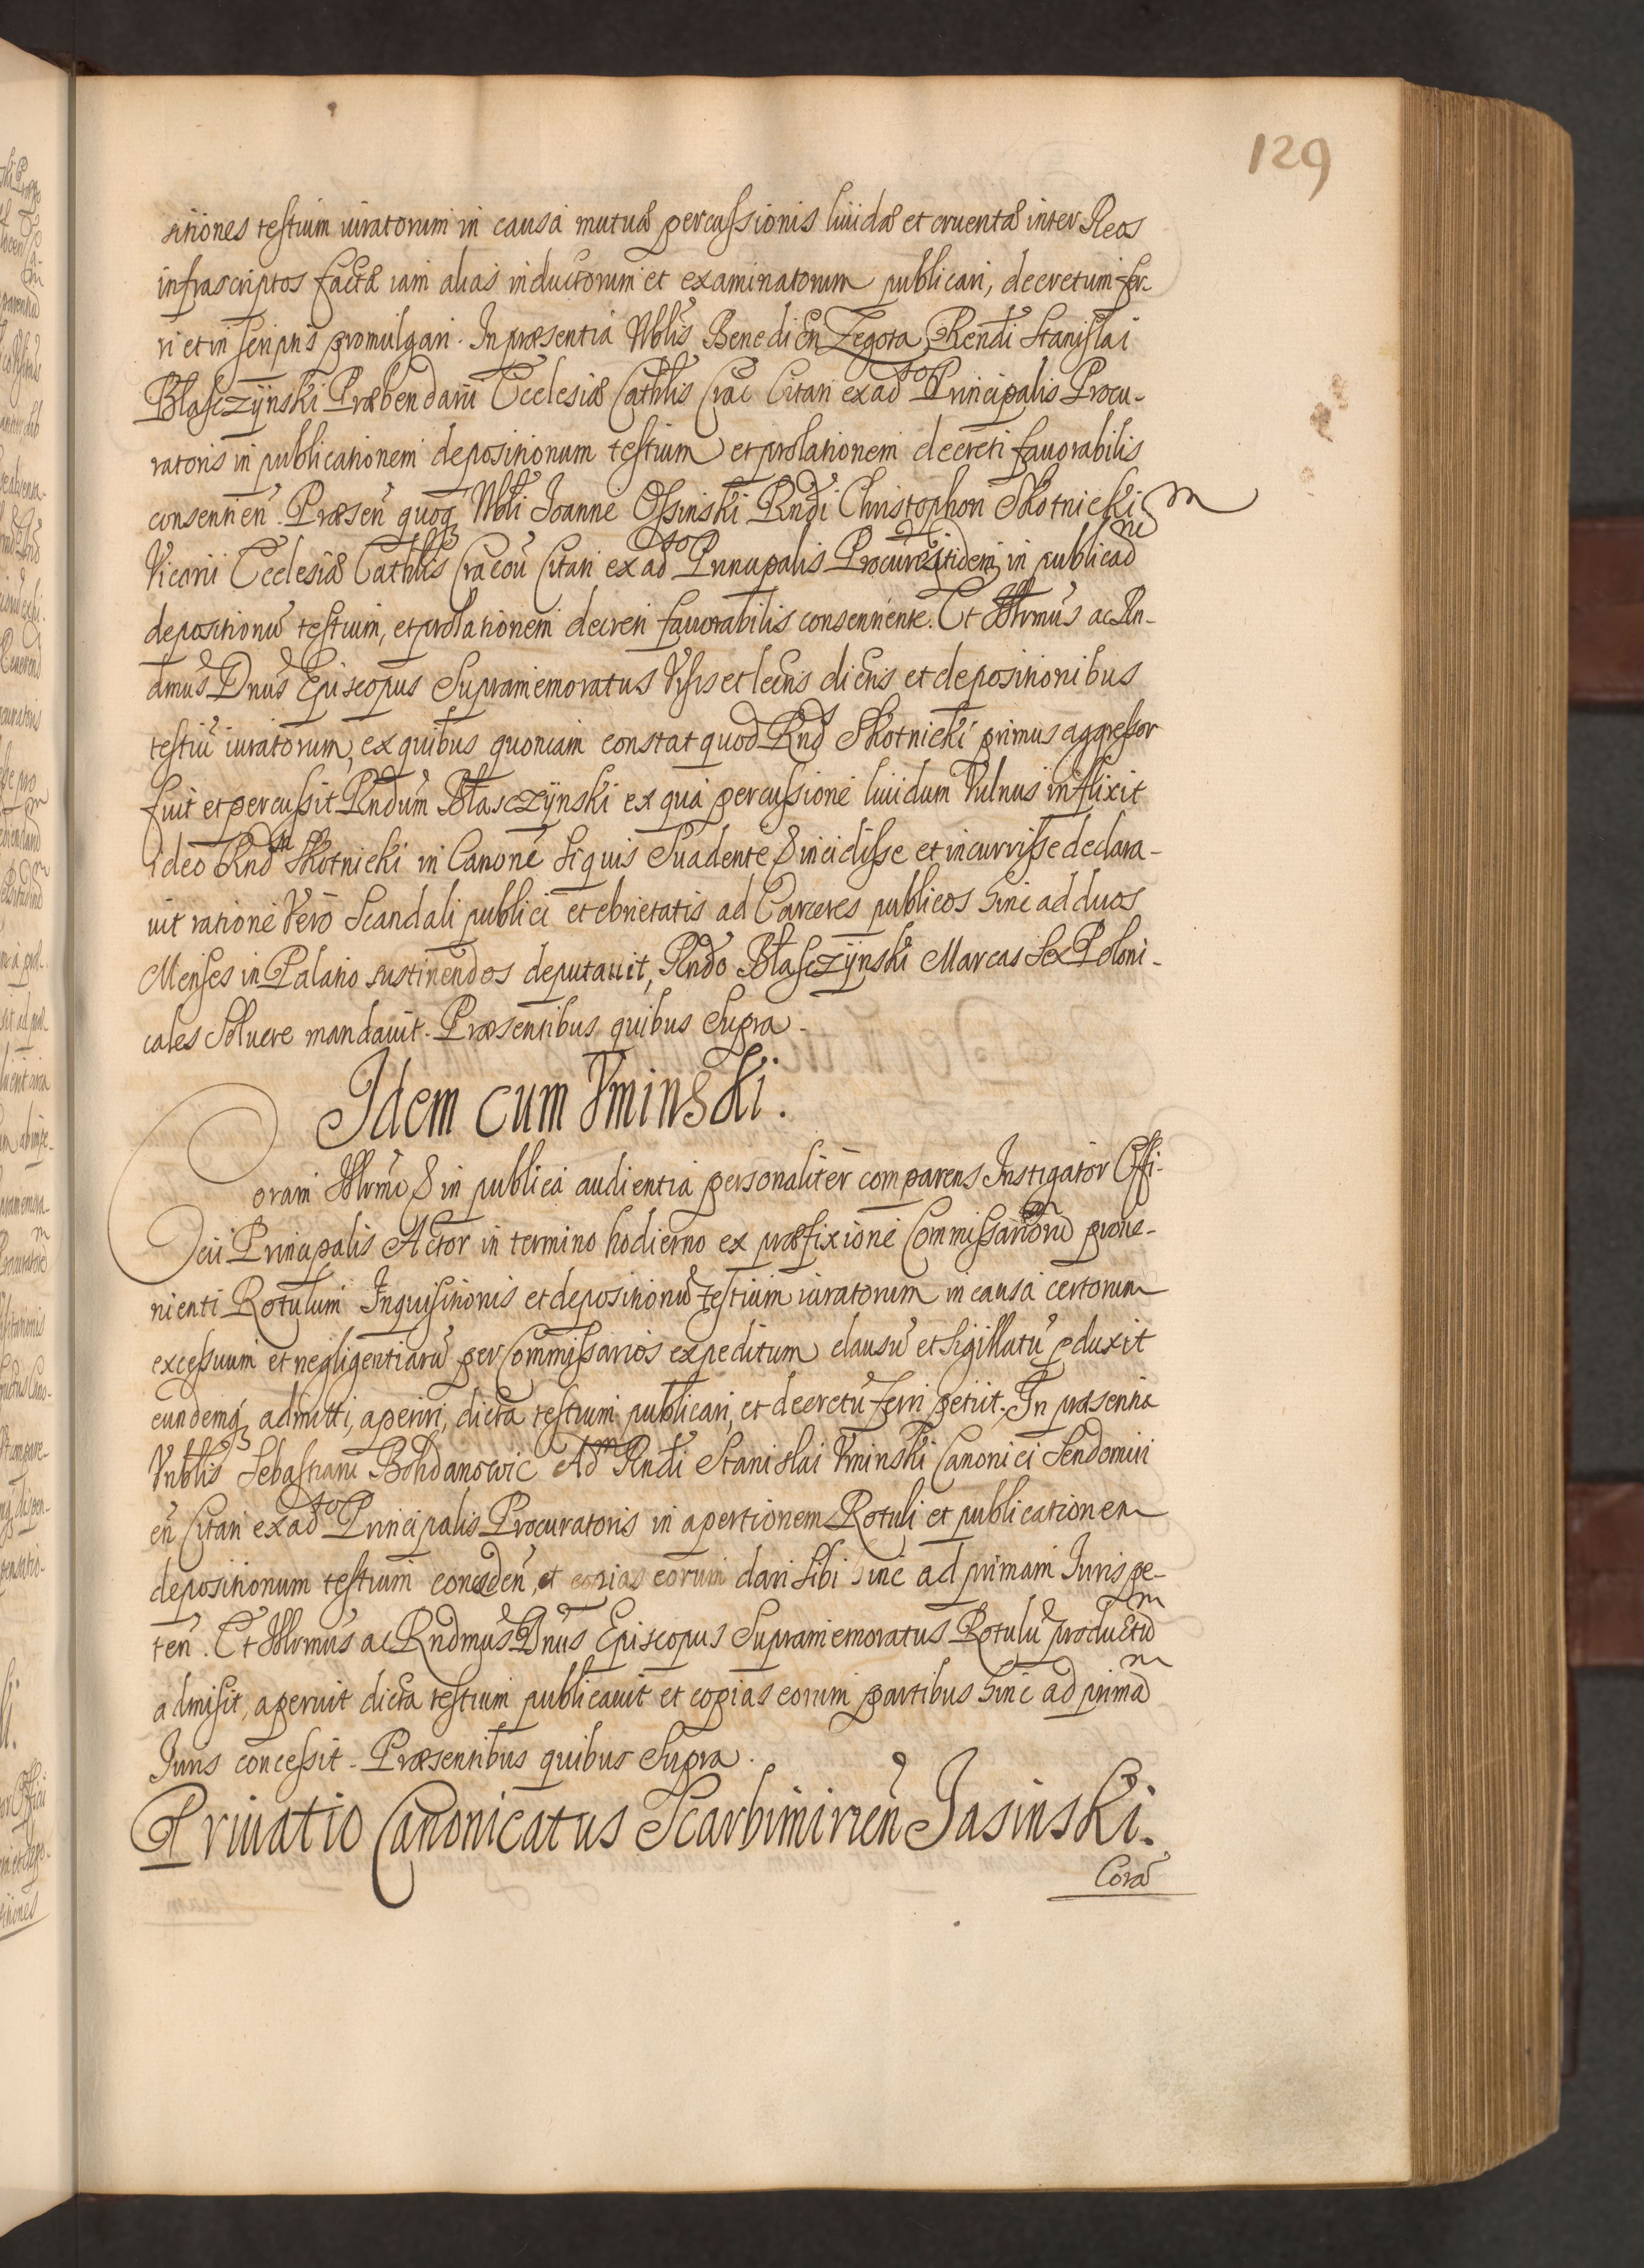 129
sitiones testium iuratorum in causa mutuæ percussionis liuidæ et cruentæ inter Reos
infrascriptos factæ iam alias inductorum et examinatorum publicari, decretum fer-
ri et in scriptis promulgari. In præsentia Nblis Benedicti Zegota Rendi Stanislai
Blasczÿnski Præbendarii Ecclesiæ Cathlis Crac Citati ex ad sto Principalis Procu-
ratoris in publicationem depositionum testium et prolationem decreti fauorabilis
consentien. Præsen quoq Nbli Joanne Ossinski Rndi Christophori Skotnicki
Vicarii Ecclesiæ Cathlis Cracou Citati ex ad sto Principalis Procure itidem in publicadnem
depositionu testium, et prolationem decreti fauorabilis consentiente. Et Illrmus ac Rn-
dmus Dnus Episcopus Supramemoratus Visis et lectis dictis et depositionibus
testiu iuratorum, ex quibus quoniam constat quod Rnd Skotnicki primus aggressor
fuit et percussit Rndum Blasczÿnski ex qua percussione liuidum Vulnus inflixit
ideo Rndm Skotnicki in Canone Siquis Suadente & incidisse et incurrisse declara-
uit ratione Vero Scandali publici et ebrietatis ad Carceres publicos hinc ad duos
Menses in Palatio sustinendos deputauit, Rndo Blasczÿnski Marcas Sex Poloni-
cales Soluere mandauit. Præsentibus quibus Supra.
Idem cum Vminski.
Coram Illrmo & in publica audientia personaliter comparens Instigator Offi-
cii Principalis Actor in termino hodierno ex præfixione Commissarioru proue-
nienti Rotulum Inquisitionis et depositionu testium iuratorum in causa certorum
excessuum et negligentiaru per Commissarios expeditum clausu et Sigillatu pduxit
eundemq admitti, aperiri, dicta testium publicari, et decretu ferri petiit. In præsentia
Vnblis Sebastiani Bohdanowic Adm Rndi Stanislai Vminski Canonici Sendomiri
en Citati ex ad sto Principalis Procuratoris in apertionem Rotuli et publicationem
depositionum testium conceden, et copias eorum dari Sibi hinc ad primam Iuris pe-
ten. Et Illrmus ac Rndmus Dnus Episcopus Supramemoratus Rotulu productu
admisit, aperuit dicta testium publicauit et copias eorum partibus hinc ad prima
Iuris concessit. Præsentibus quibus Supra.
Priuatio Canonicatus Scarbimirien Jasinski.
Cora